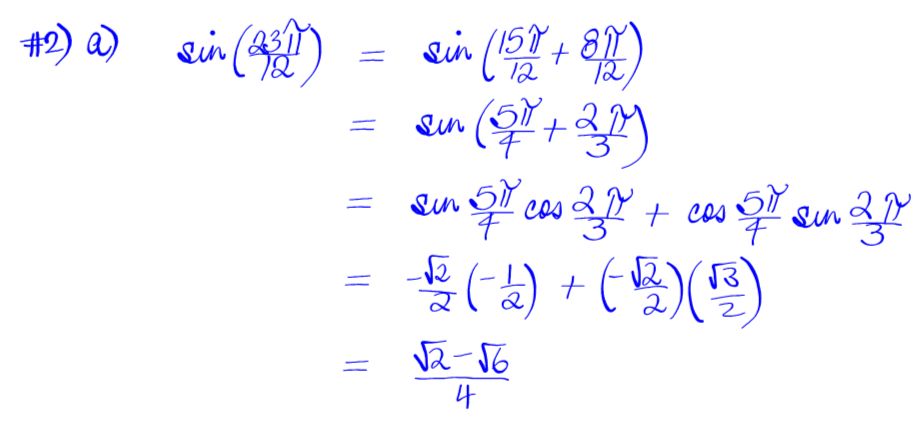 #2) a) sin(23π/12) = sin(15π/12 + 8π/12)
= sin(5π/4 + 2π/3)
= sin 5π/4 cos 2π/3 + cos 5π/4 sin 2π/3
= -√2/2 (-1/2) + (-√2/2)(√3/2)
= (√2-√6)/4